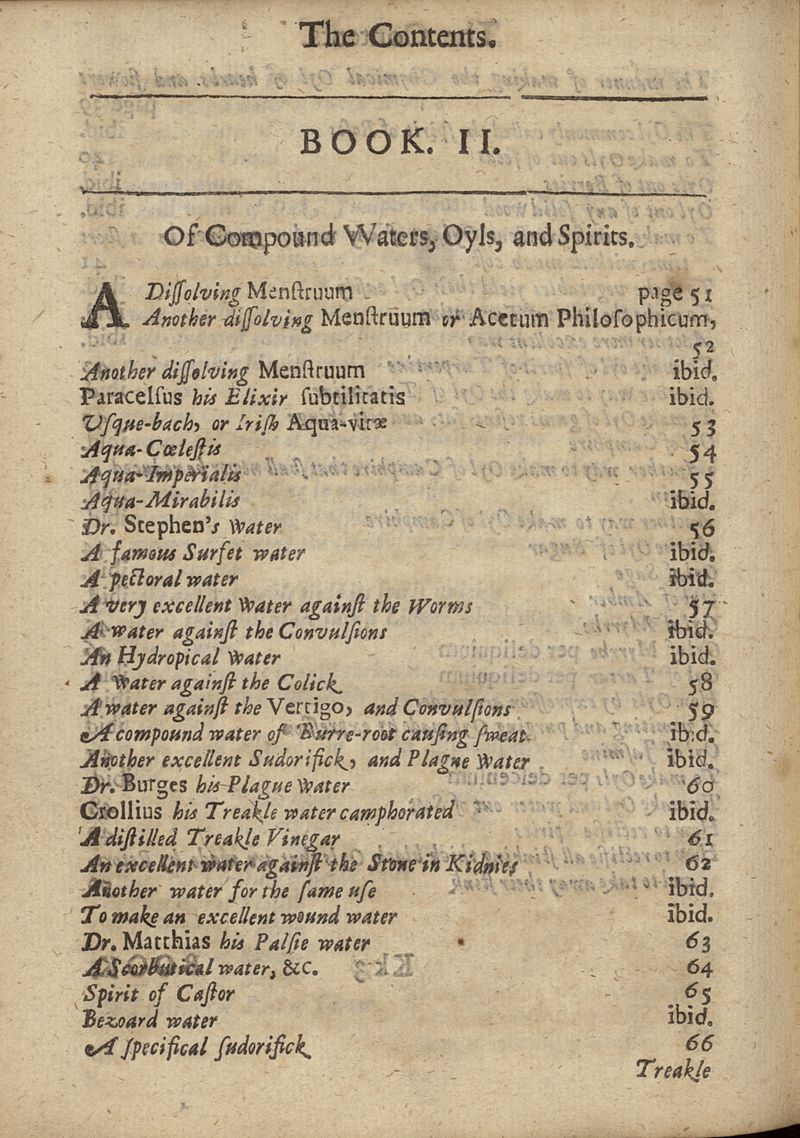 The Contents.
BOOK. II.
Of Compound Waters, Oyls, and Spirits.
A Diſſolving Menſtruum page 51
Another diſſolving Menſtruum or Acetum Philoſophicum,
52
Another diſſolving Menſtruum ibid.
Paracelſus his Elixir ſubtilitatis ibid.
Vſque-bach, or Iriſh Aqua-vitæ 53
Aqua-Cœleſtis 54
Aqua-Imperialis 55
Aqua-Mirabilis ibid.
Dr. Stephen's Water 56
A famous Surfet water ibid.
A pectoral water ibid.
A very excellent Water againſt the Worms 57
A water againſt the Convulſions ibid.
An Hydropical Water ibid.
A Water againſt the Colick 58
A water againſt the Vertigo, and Convulſions 59
A compound water of Burre-root cauſing ſweat ibid.
Another excellent Sudorifick, and Plague Water ibid.
Dr. Burges his Plague Water 60
Crollius his Treakle water camphorated ibid.
A diſtilled Treakle Vinegar 61
An excellent water againſt the Stone in Kidnies 62
Another water for the ſame uſe ibid.
To make an excellent wound water ibid.
Dr. Matthias his Palſie water 63
A Scorbutical water, &c. 64
Spirit of Caſtor 65
Bezoard water ibid.
A ſpecifical ſudorifick 66
Treakle